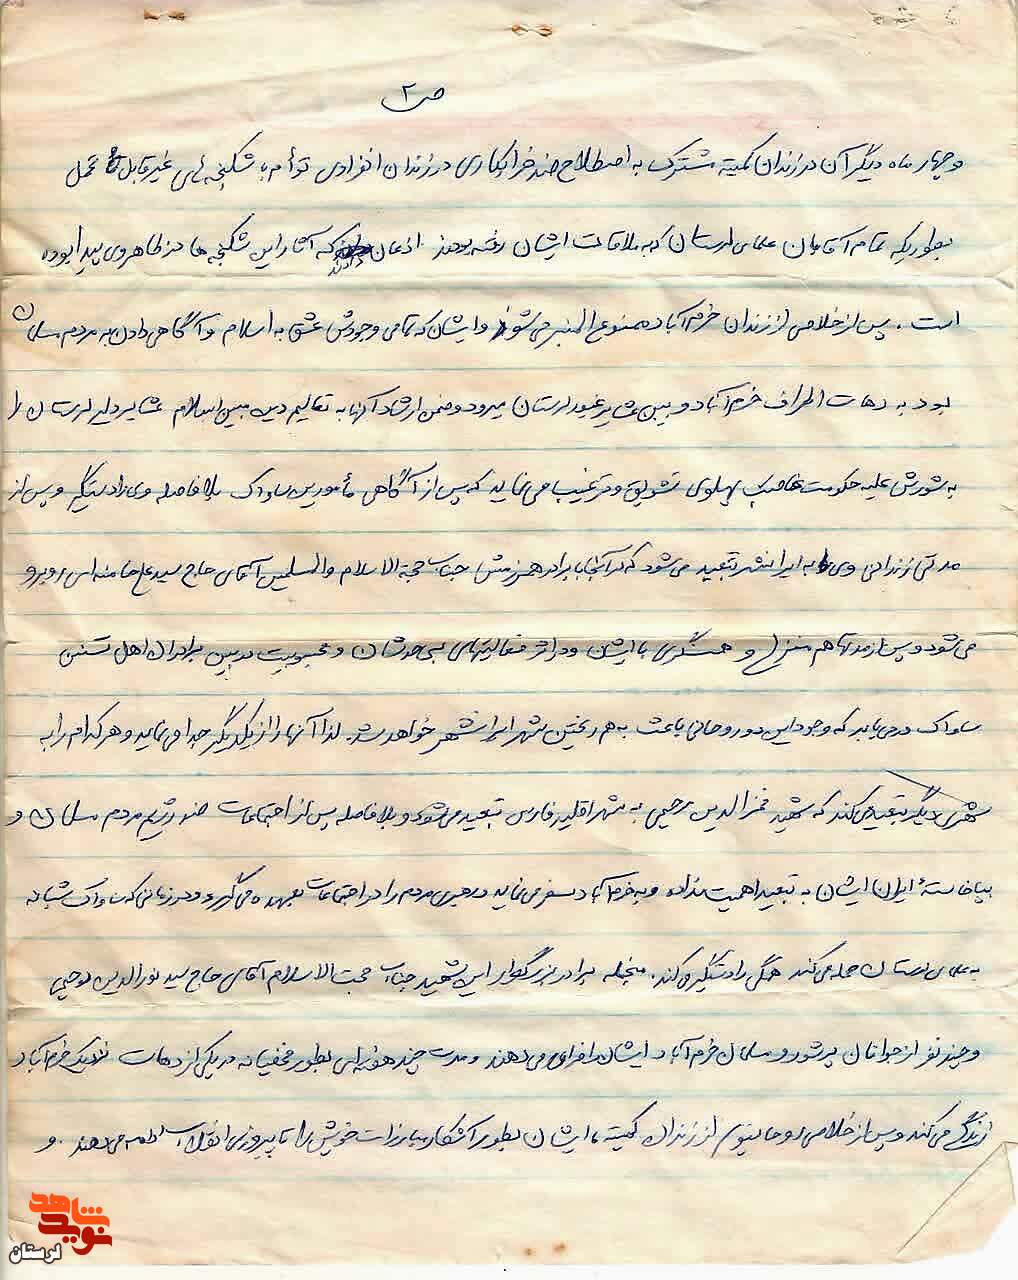 ص ۲
و چهار ماه دیگر آن در زندان کمیته مشترک به اصطلاح ضد خرابکاری در زندان انفرادی توأم با شکنجه های غیر قابل تحمل
بطوریکه تمام آقایان علمای لرستان که به ملاقات ایشان رفته بودند اذعان دارند که آثار این شکنجه ها در ظاهر وی پیدا بوده
است . پس از خلاصی از زندان خرم آباد ممنوع المنبر می شوند و ایشان که تمامی وجودش عشق به اسلام و آگاهی دادن به مردم مسلمان
بود به دهات اطراف خرم آباد و بین عشایر غیور لرستان میرود و ضمن ارشاد آنها به تعالیم دین مبین اسلام عشایر دلیر لرستان را
به شورش علیه حکومت غاصب پهلوی تشویق و ترغیب می نماید که پس از آگاهی مأمورین ساواک بلافاصله وی را دستگیر و پس از
مدتی زندانی وی به ایرانشهر تبعید می شود که در آنجا با برادر همرزمش جناب حجة الاسلام والمسلمین آقای حاج سید علی خامنه ای روبرو
می شود و پس از مدتها هم منزلی و همسنگری با ایشان و در اثر فعالیتهای بی حدشان و محبوبیت در بین برادران اهل تسنن
ساواک در می یابد که وجود این دو روحانی باعث به هم ریختن شهر ایرانشهر خواهد شد. لذا آنها را از یکدیگر جدا می نماید و هر کدام را به
شهری دیگر تبعید می کند که شهید فخرالدین رحیمی به شهر اقلید فارس تبعید می شود و بلافاصله پس از اجتماعات ضد رژیم مردم مسلمان و
بپاخاستهٔ ایران ایشان به تبعید اهمیت نداده و به خرم آباد سفر می نماید و رهبری مردم را در اجتماعات بعهده می گیرد و در زمانی که ساواک شبانه
به علمای لرستان حمله می کند همگی را دستگیر می کند. منجمله برادر بزرگوار این شهید جناب حجت الاسلام آقای حاج سید نورالدین رحیمی
و چند نفر از جوانان پرشور و مسلمان خرم آباد ایشان را فراری می دهند و مدت چند هفته ای بطور مخفیانه در یکی از دهات نزدیک خرم آباد
زندگی می کند و پس از خلاصی روحانیون از زندان کمیته ایشان بطور آشکار مبارزات خویش را تا پیروزی انقلاب ادامه می دهند . و
نوید شاهد
لرستان